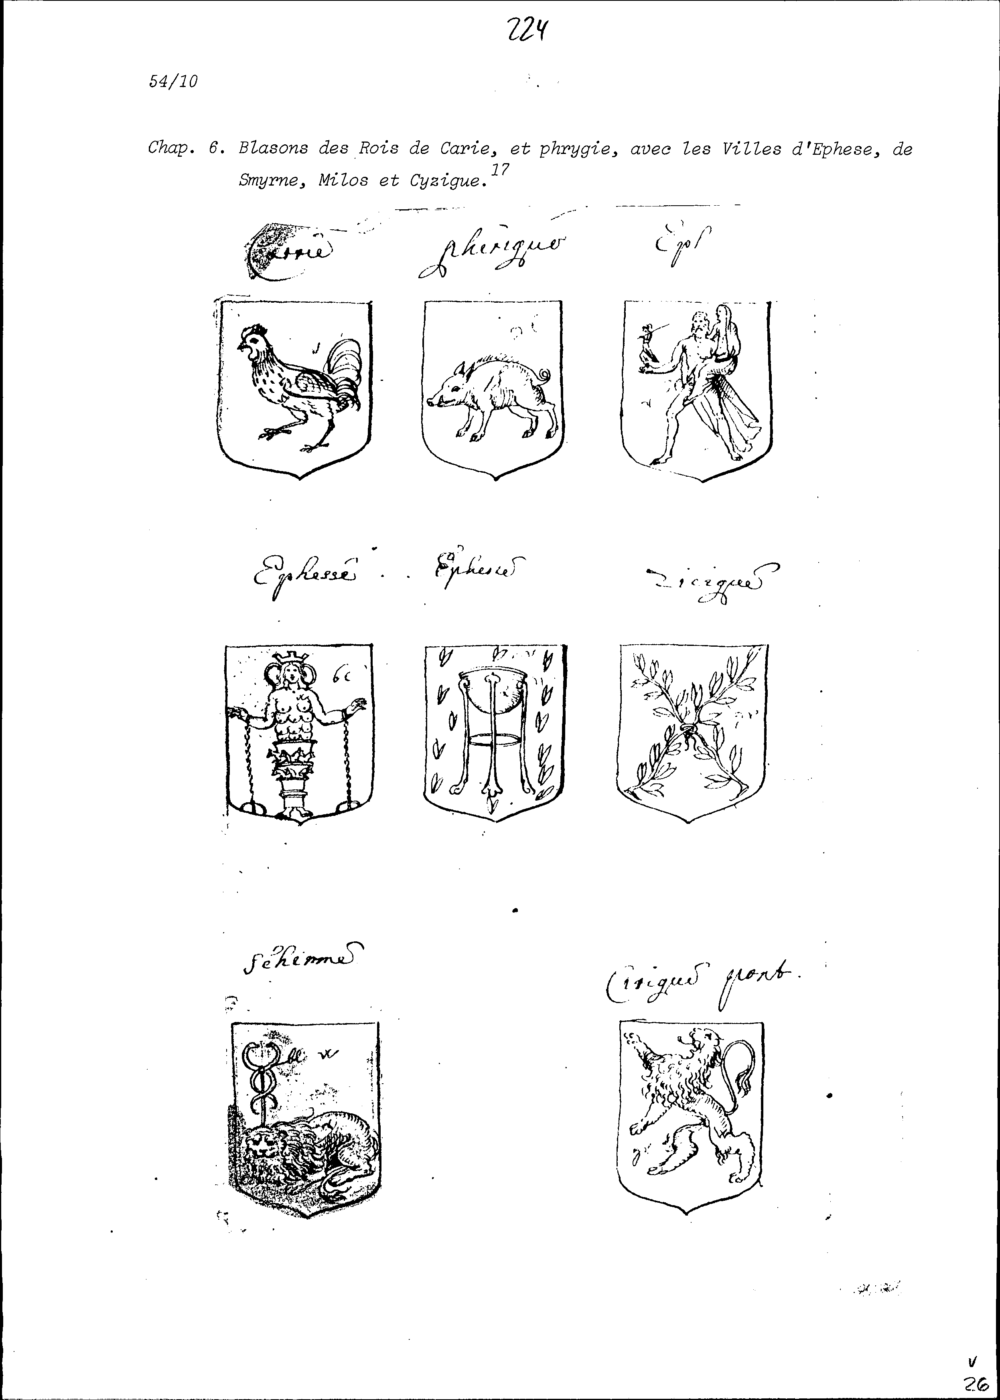 224
54/10
Chap. 6. Blasons des Rois de Carie, et phrygie, avec les Villes d'Ephese, de
Smyrne, Milos et Cyzigue.17
Carrie
phirigue
Eps
Ephesse
Ephesse
Zicique
6c
sehirme
Cirigue pont.
v
26